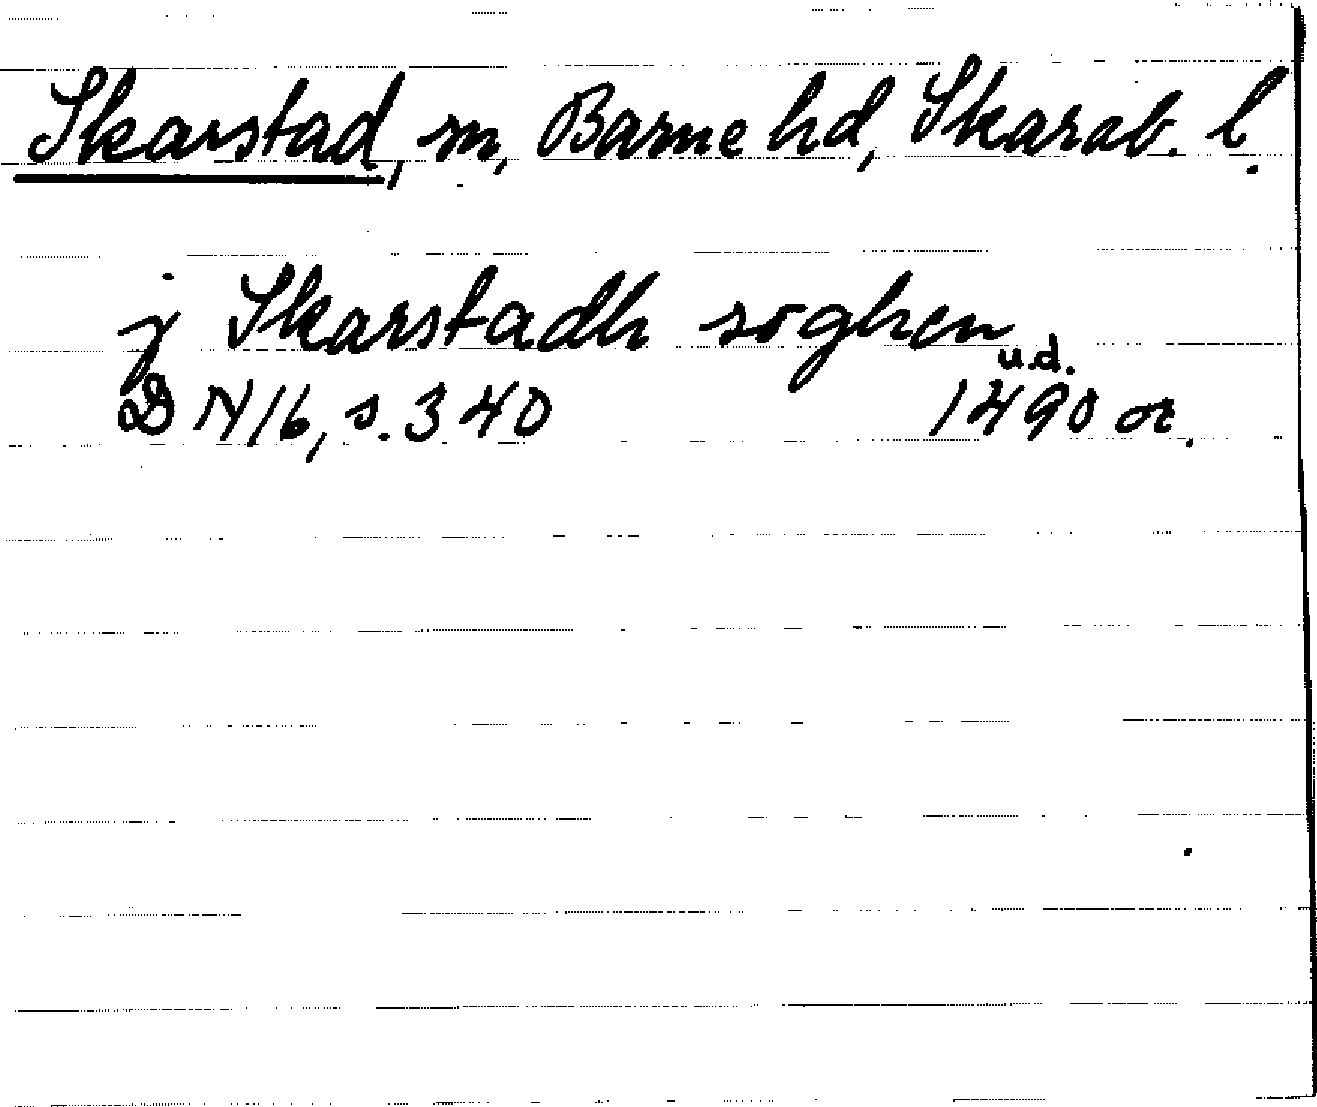 Skarstad, sn, Barne hd, Skarab. l.
j Skarstadh soghen
u.d.
DN 16, s. 340 1490 or.